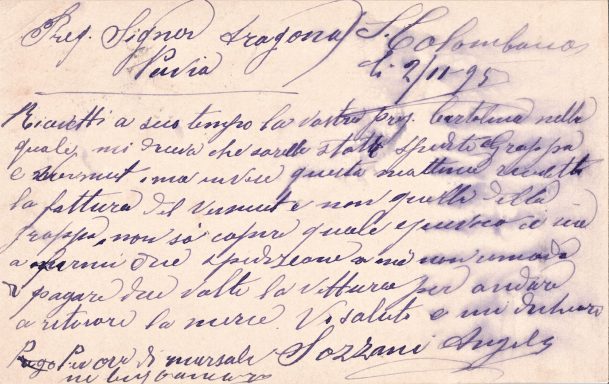 Preg. Signor Aragona S. Colombano
Pavia li 2/11-95
Ricevetti a suo tempo la vostra preg. Cartolina nella
quale mi diceva che sarebbe stata spedita Grappa
e vermut, ma invece questa mattina
la fattura del Vermut e non quella della
grappa, non sò capire quale
a farmi due spedizione a me non
pagare due volte la vettura per andare
a ritirare la merce. Vi saluto e mi dichiaro
Sozzani Angelo
Per ora di marsala
ne